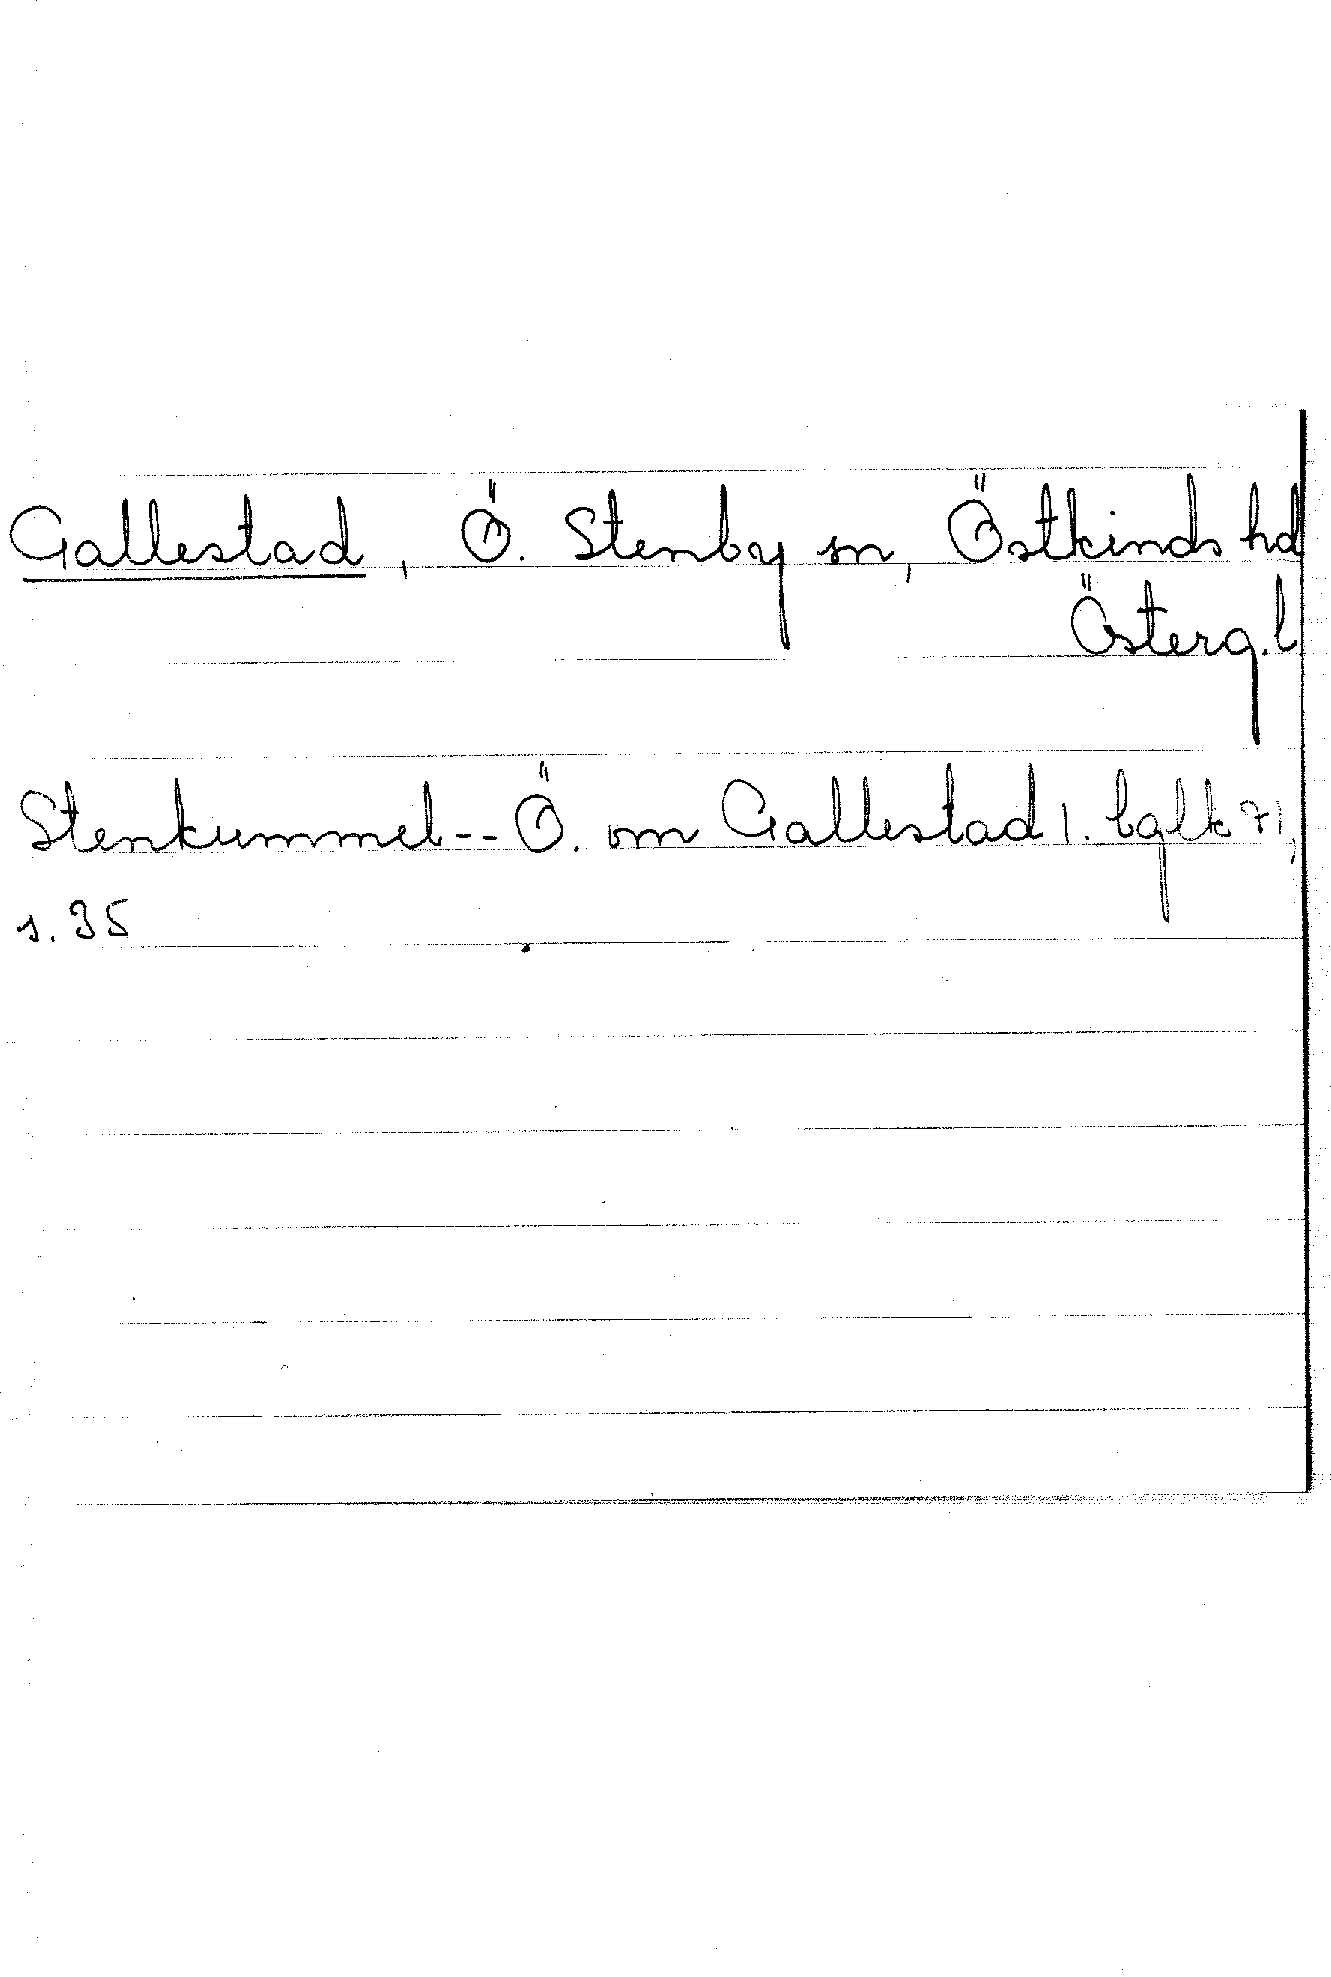 Gallestad, Ö. Stenby sn, Östkinds hd
Österg.l.
Stenkummel -- Ö. om Gallestad 1. bglk 71,
s. 35